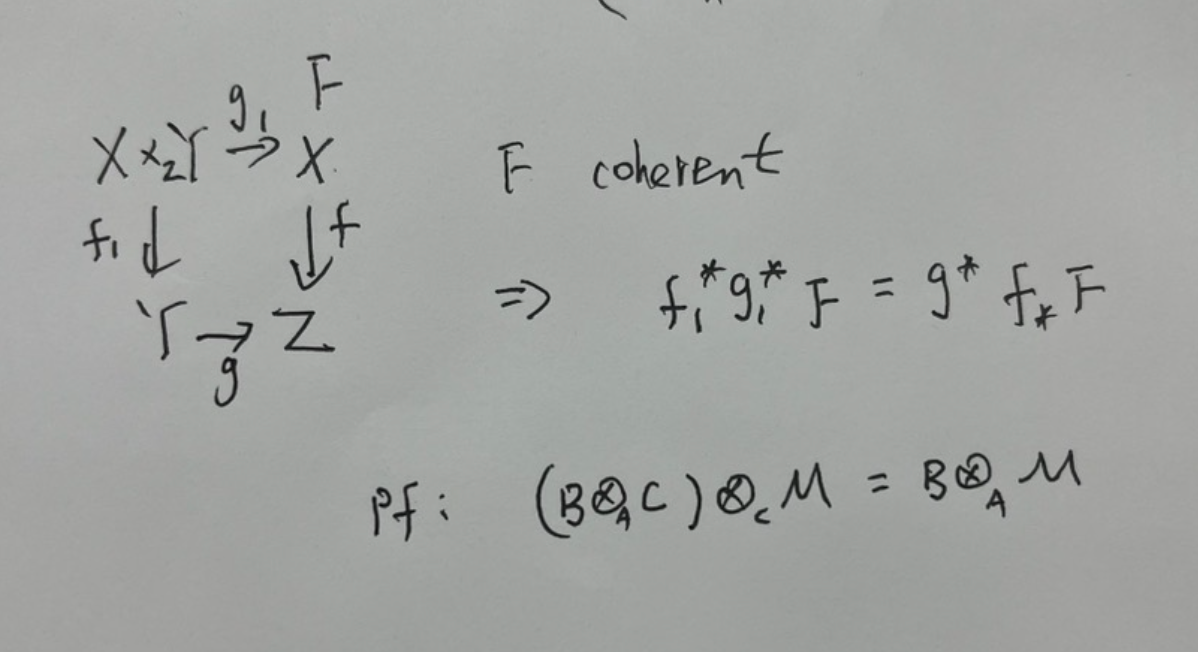 F
X ×_Z Y →^{g_1} X
f_1 ↓ ↓ f
Y →_g Z
F coherent
⇒ f_1^* g_1^* F = g^* f_* F
Pf: (B⊗_A C)⊗_C M = B⊗_A M